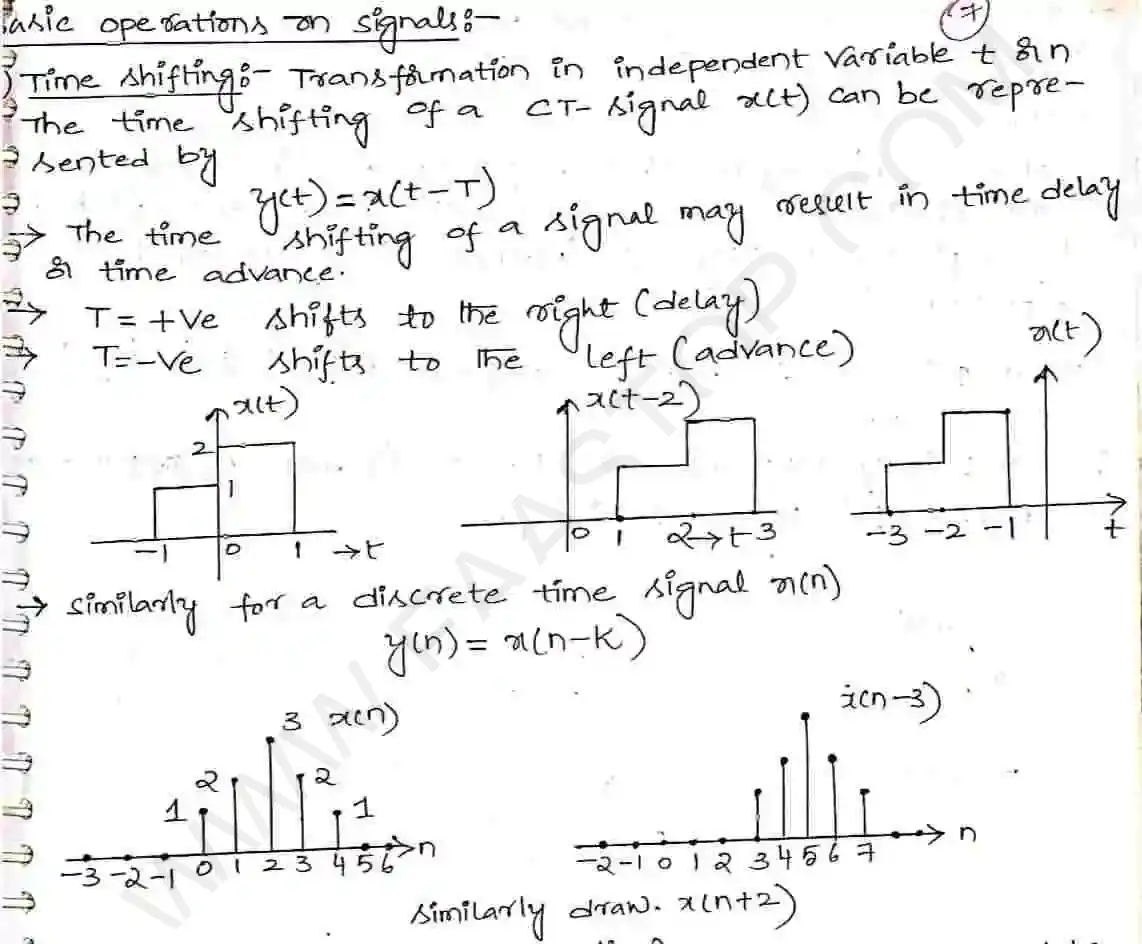 asic operations on signals:-
7
) Time shifting:- Transformation in independent variable t or n
The time shifting of a CT- signal x(t) can be repre-
sented by
y(t) = x(t-T)
→ The time shifting of a signal may result in time delay
or time advance.
→ T = +Ve shifts to the right (delay)
→ T=-Ve shifts to the left (advance)
x(t)
2
1
-1 0 1 →t
x(t-2)
0 1 2→t 3
x(t)
-3 -2 -1 t
→ similarly for a discrete time signal x(n)
y(n) = x(n-K)
3 x(n)
2 2
1 1
-3 -2 -1 0 1 2 3 4 5 6 n
x(n-3)
-2 -1 0 1 2 3 4 5 6 7 n
similarly draw. x(n+2)
WWW.FAASTOP.COM